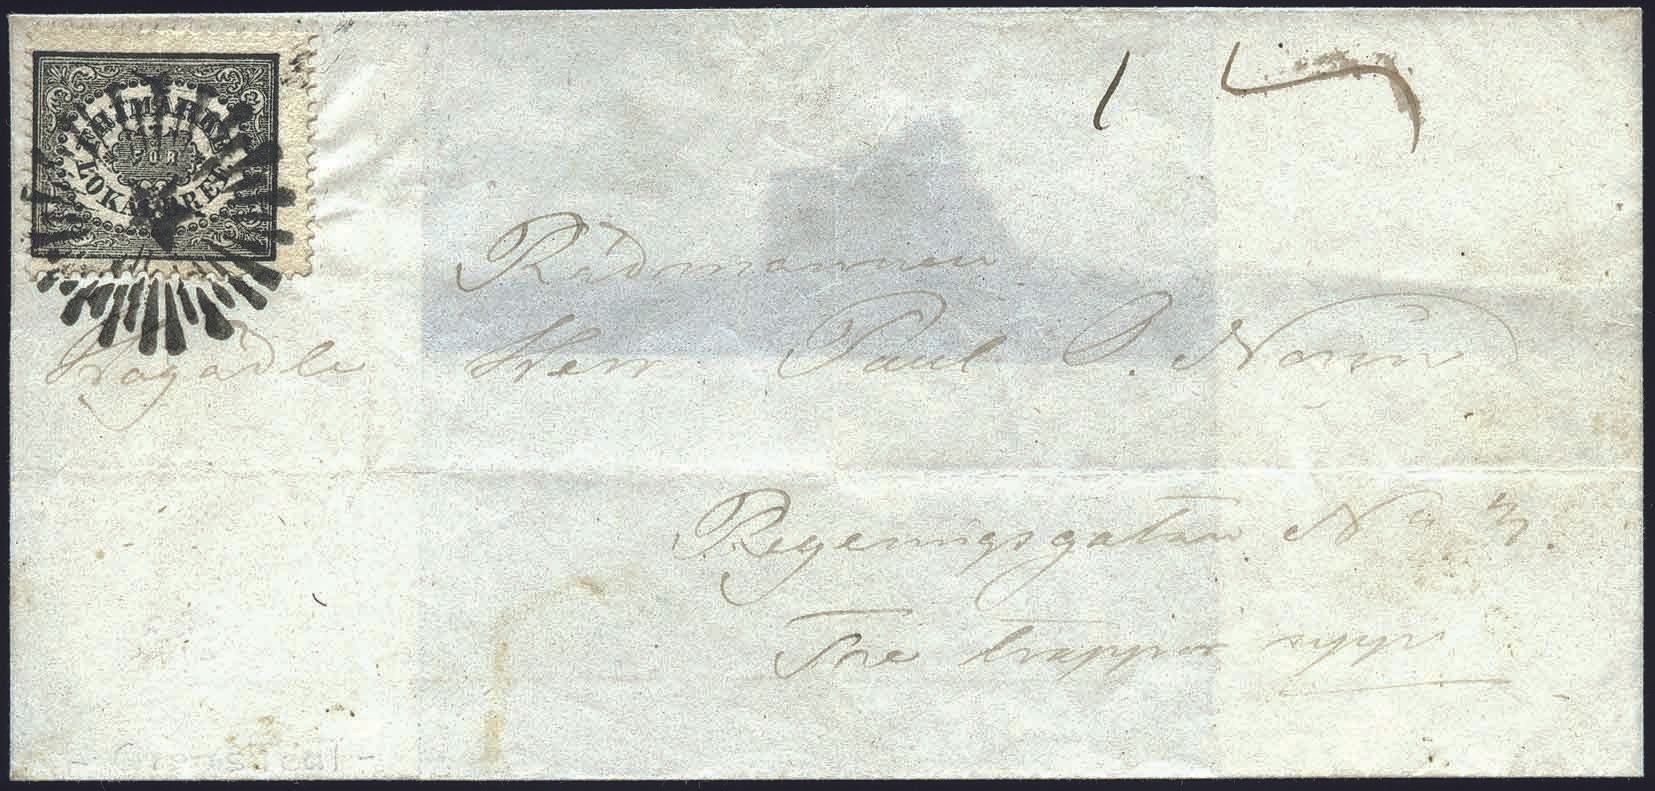 FRIMÄRKE
FÖR
LOKALBREF
Rådmannen
Herr Paul
Regeringsgatan No 3.
Tre trappor upp